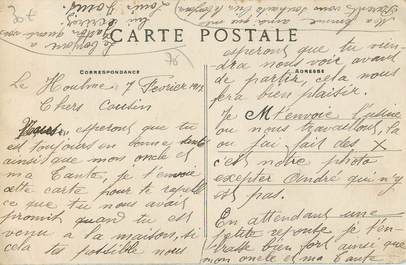 CARTE POSTALE
CORRESPONDANCE
ADRESSE
Le Houlme 7 Fevrier
Chers Cousin
Nous esperons que tu
est toujours en bonne santé
ainsi que mon oncle et
ma Tante, je t'envoie
cette carte pour te rapelle
ce que tu nous avait
promit quand tu est
venu a la maison, si
cela t'es possible nous
esperons que tu vien
dra nous voir avant
de partir, cela nous
fera bien plaisir.
Je t'envoie l'usine
ou nous travaillons, la
ou j'ai fait des X
c'est notre photo
excepter André qui n'y
est pas.
En attendant une
petite reponse je t'en
brasse bien fort ainsi que
mon oncle et ma Tante